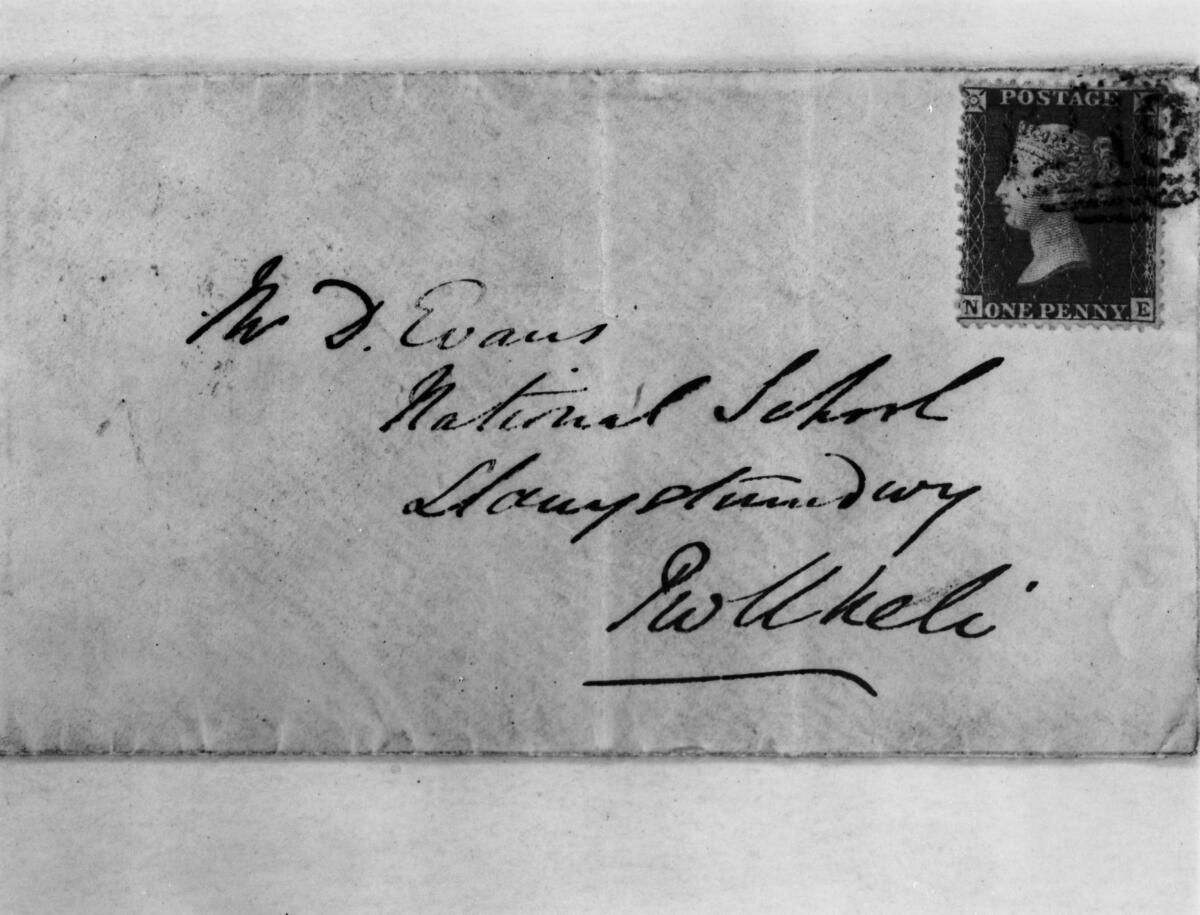 POSTAGE
N ONE PENNY E
Mr D. Evans
National School
Llanystumdwy
Pwllheli